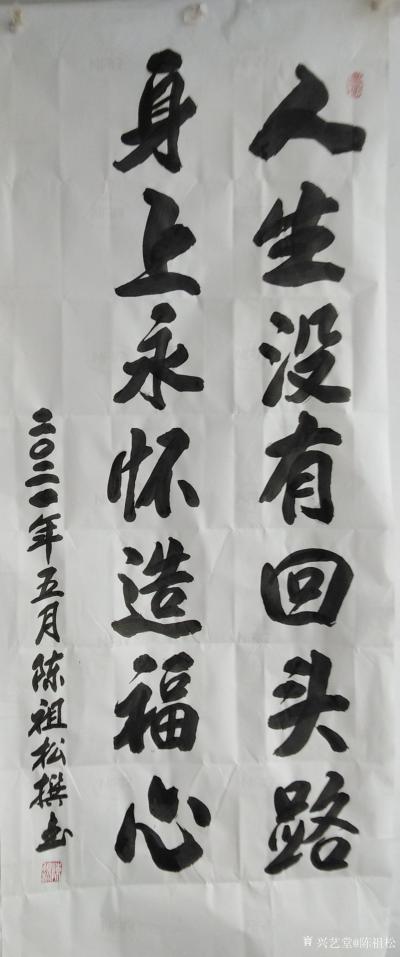 人生没有回头路
身上永怀造福心
二〇二一年五月陈祖松撰书
兴艺堂@陈祖松